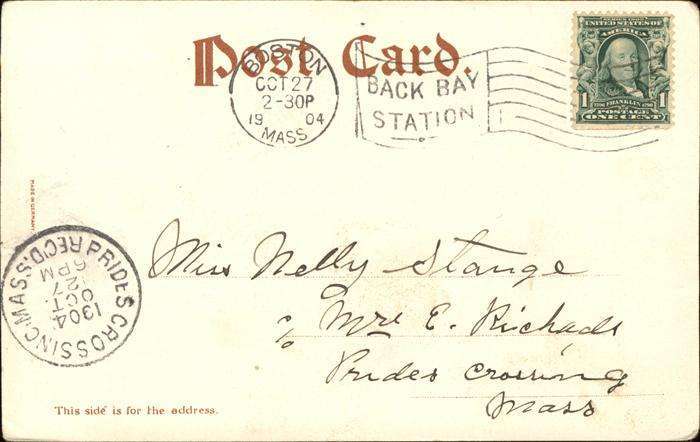 Post Card.
BOSTON
OCT 27
2-30P
19 04
MASS
BACK BAY
STATION
SERIES 1902
UNITED STATES OF AMERICA
1 1706 FRANKLIN 1790 1
POSTAGE
ONE CENT
MADE IN GERMANY
PRIDES CROSSING, MASS. REC'D.
1904
OCT
27
6PM
Miss Nelly Stange
c/o Mrs E. Richads
Prides Crossing
Mass
This side is for the address.